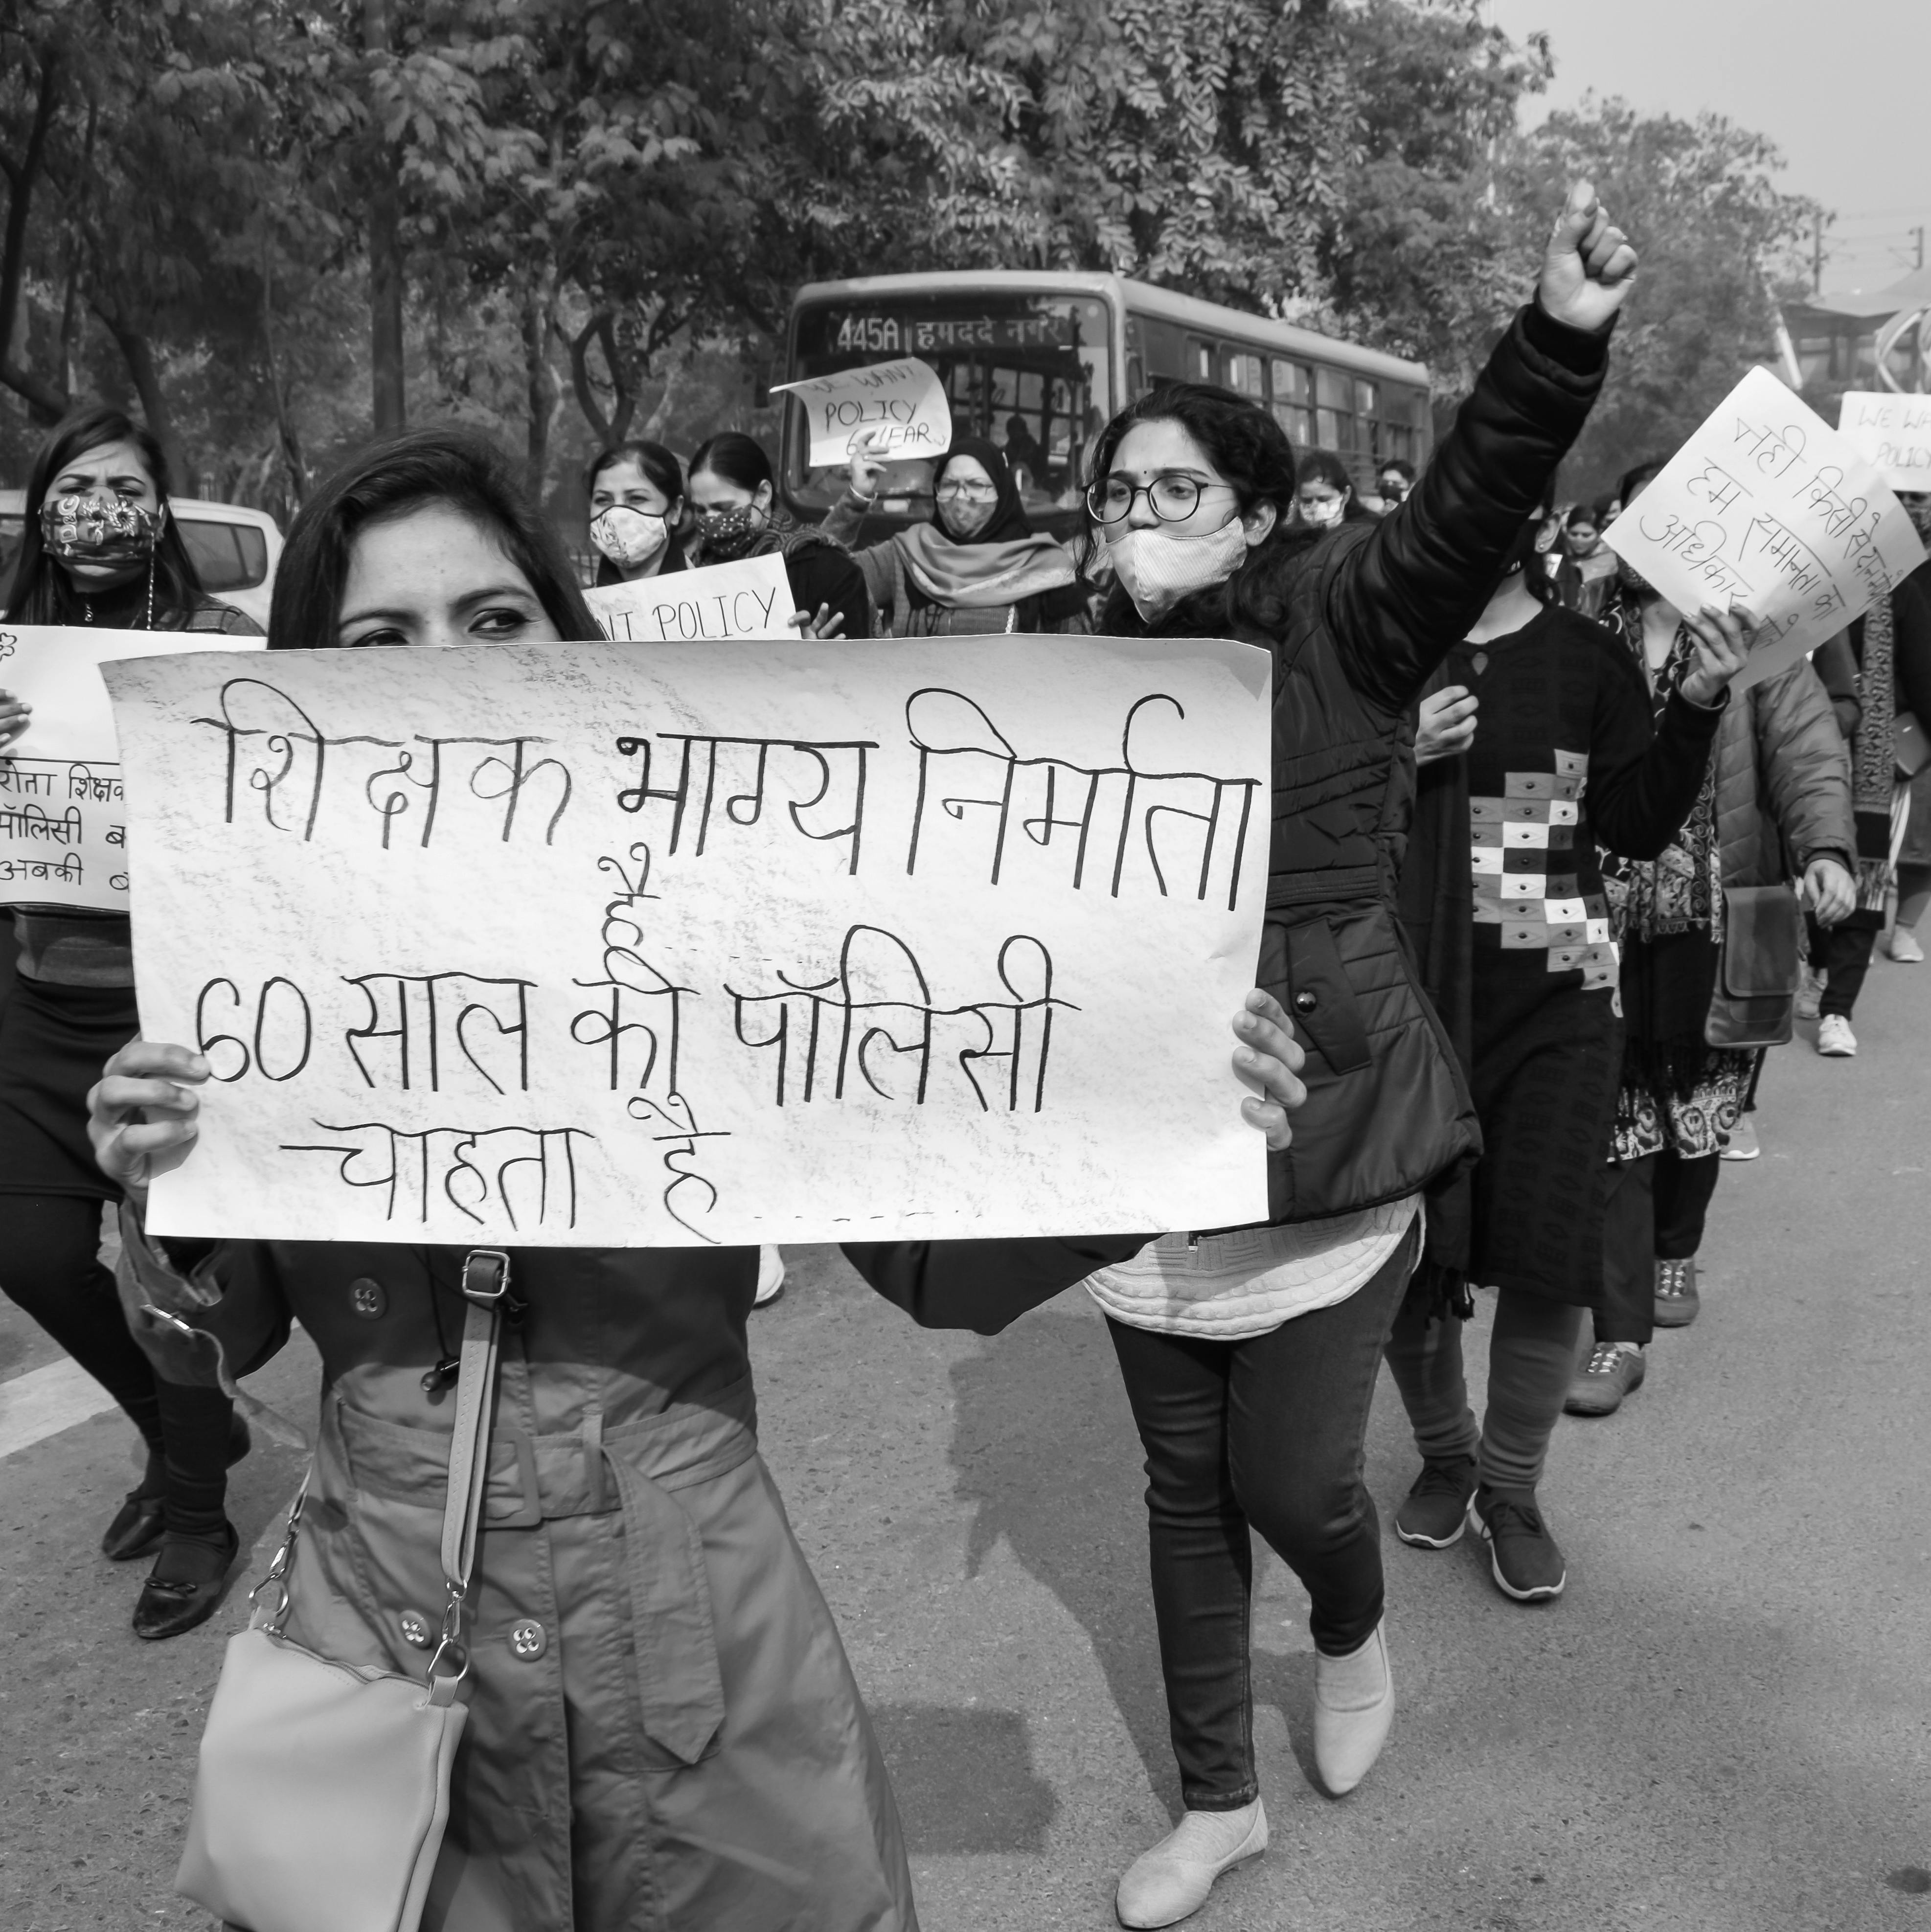 445A हमदर्द नगर
WE WANT
POLICY
60 YEAR
WE WA
POLICY
नही किसी से
हम समानता के
अधिकार
NT POLICY
शिक्षक भाग्य निर्माता
है
60 साल की पॉलिसी
चाहता है........
रोता शिक्षक
पॉलिसी ब
अबकी ब